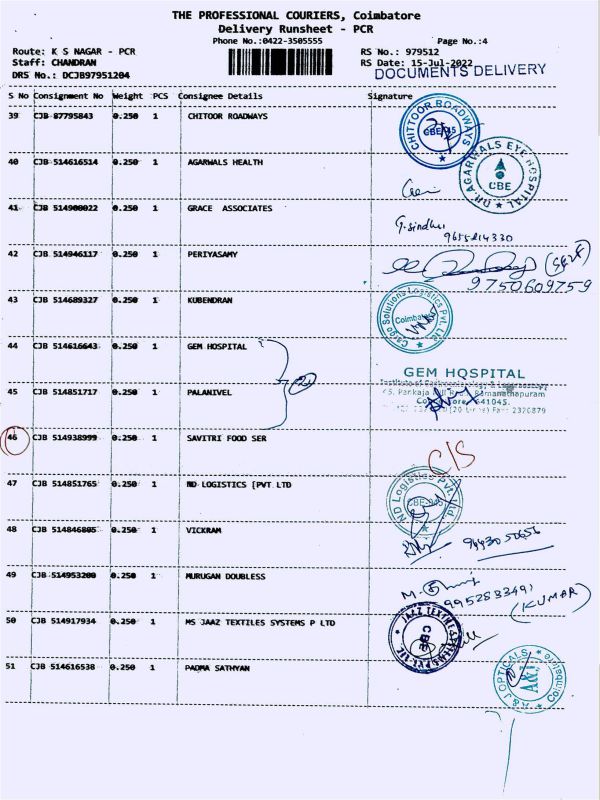 THE PROFESSIONAL COURIERS, Coimbatore
Delivery Runsheet - PCR
Phone No.:0422-3505555
Page No.:4
Route: K S NAGAR - PCR
RS No.: 979512
Staff: CHANDRAN
RS Date: 15-Jul-2022
DRS No.: DCJB97951204
DOCUMENTS DELIVERY
S No Consignment No Weight PCS Consignee Details Signature
39 CJB 87795843 0.250 1 CHITOOR ROADWAYS
CHITTOOR ROADWAYS
40 CJB 514616514 0.250 1 AGARWALS HEALTH
DR.AGARWALS EYE HOSPITAL
CBE
41 CJB 514908022 0.250 1 GRACE ASSOCIATES
G.Sindhu
42 CJB 514946117 0.250 1 PERIYASAMY
(Self)
9750609759
43 CJB 514689327 0.250 1 KUBENDRAN
Cargo Solutions Logistics Pvt. Ltd.
Coimbatore
44 CJB 514616643 0.250 1 GEM HOSPITAL
(2)
GEM HOSPITAL
45, Pankaja Mill Road, Ramanathapuram
45 CJB 514851717 0.250 1 PALANIVEL
46 CJB 514938999 0.250 1 SAVITRI FOOD SER
C/S
47 CJB 514851765 0.250 1 ND LOGISTICS [PVT LTD
ND Logistics Pvt. Ltd.
CBE-045
48 CJB 514846805 0.250 1 VICKRAM
49 CJB 514953200 0.250 1 MURUGAN DOUBLESS
9952833491
(KUMAR)
50 CJB 514917934 0.250 1 MS JAAZ TEXTILES SYSTEMS P LTD
CBE
51 CJB 514616538 0.250 1 PADMA SATHYAN
A & J OPTICALS
A&J
Coimbatore